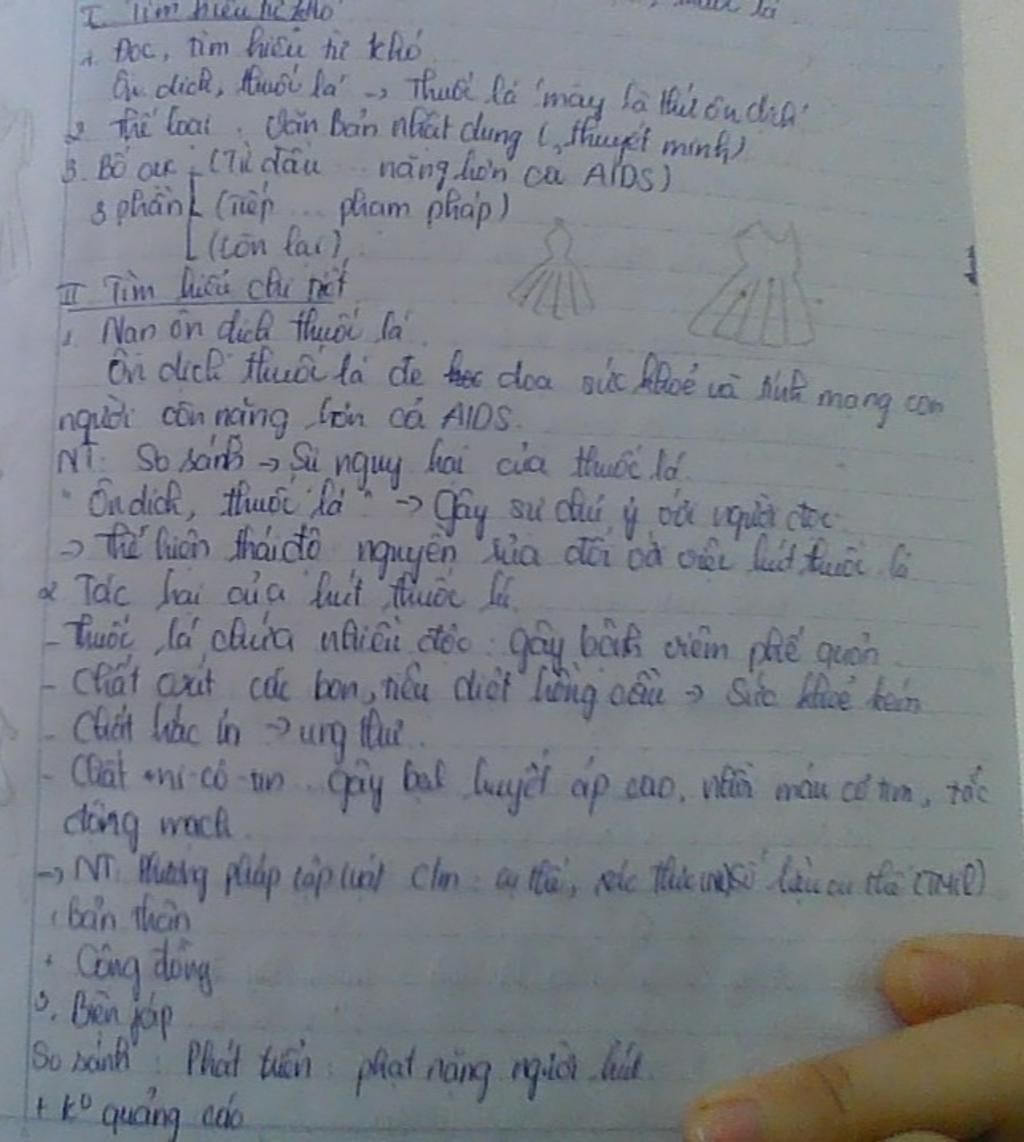 I. Tìm hiểu từ khó
1. Đọc, tìm hiểu từ khó
Ôn dịch, thuốc lá → Thuốc lá máy là thứ ôn dịch
2. Thể loại: Văn bản nhật dụng (thuyết minh)
3. Bố cục: (Từ đầu ... nặng hơn cả AIDS)
3 phần (Tiếp ... phạm pháp)
(Còn lại)
II Tìm hiểu chi tiết
1, Nạn ôn dịch thuốc lá
Ôn dịch thuốc lá đe doạ sức khoẻ và tính mạng con
người còn nặng hơn cả AIDS.
NT: So sánh → Sự nguy hại của thuốc lá.
"Ôn dịch, thuốc lá" → Gây sự chú ý với người đọc
→ Thể hiện thái độ nguyền rủa đối với việc hút thuốc lá
2 Tác hại của hút thuốc lá
- Thuốc lá chứa nhiều độc: gây bệnh viêm phế quản
- Chất oxit các bon, tiêu diệt hồng cầu → Sức khoẻ kém
- Chất hắc ín → ung thư.
- Chất ni-cô-tin. Gây huyết áp cao, nhồi máu cơ tim, tắc
động mạch
→ NT: Phương pháp lập luận c/m: cụ thể, xác thực số liệu cụ thể
bản thân
+ Cộng đồng
3. Biện fáp
So sánh: Phát triển: phạt nặng người hút
+ K⁰ quảng cáo